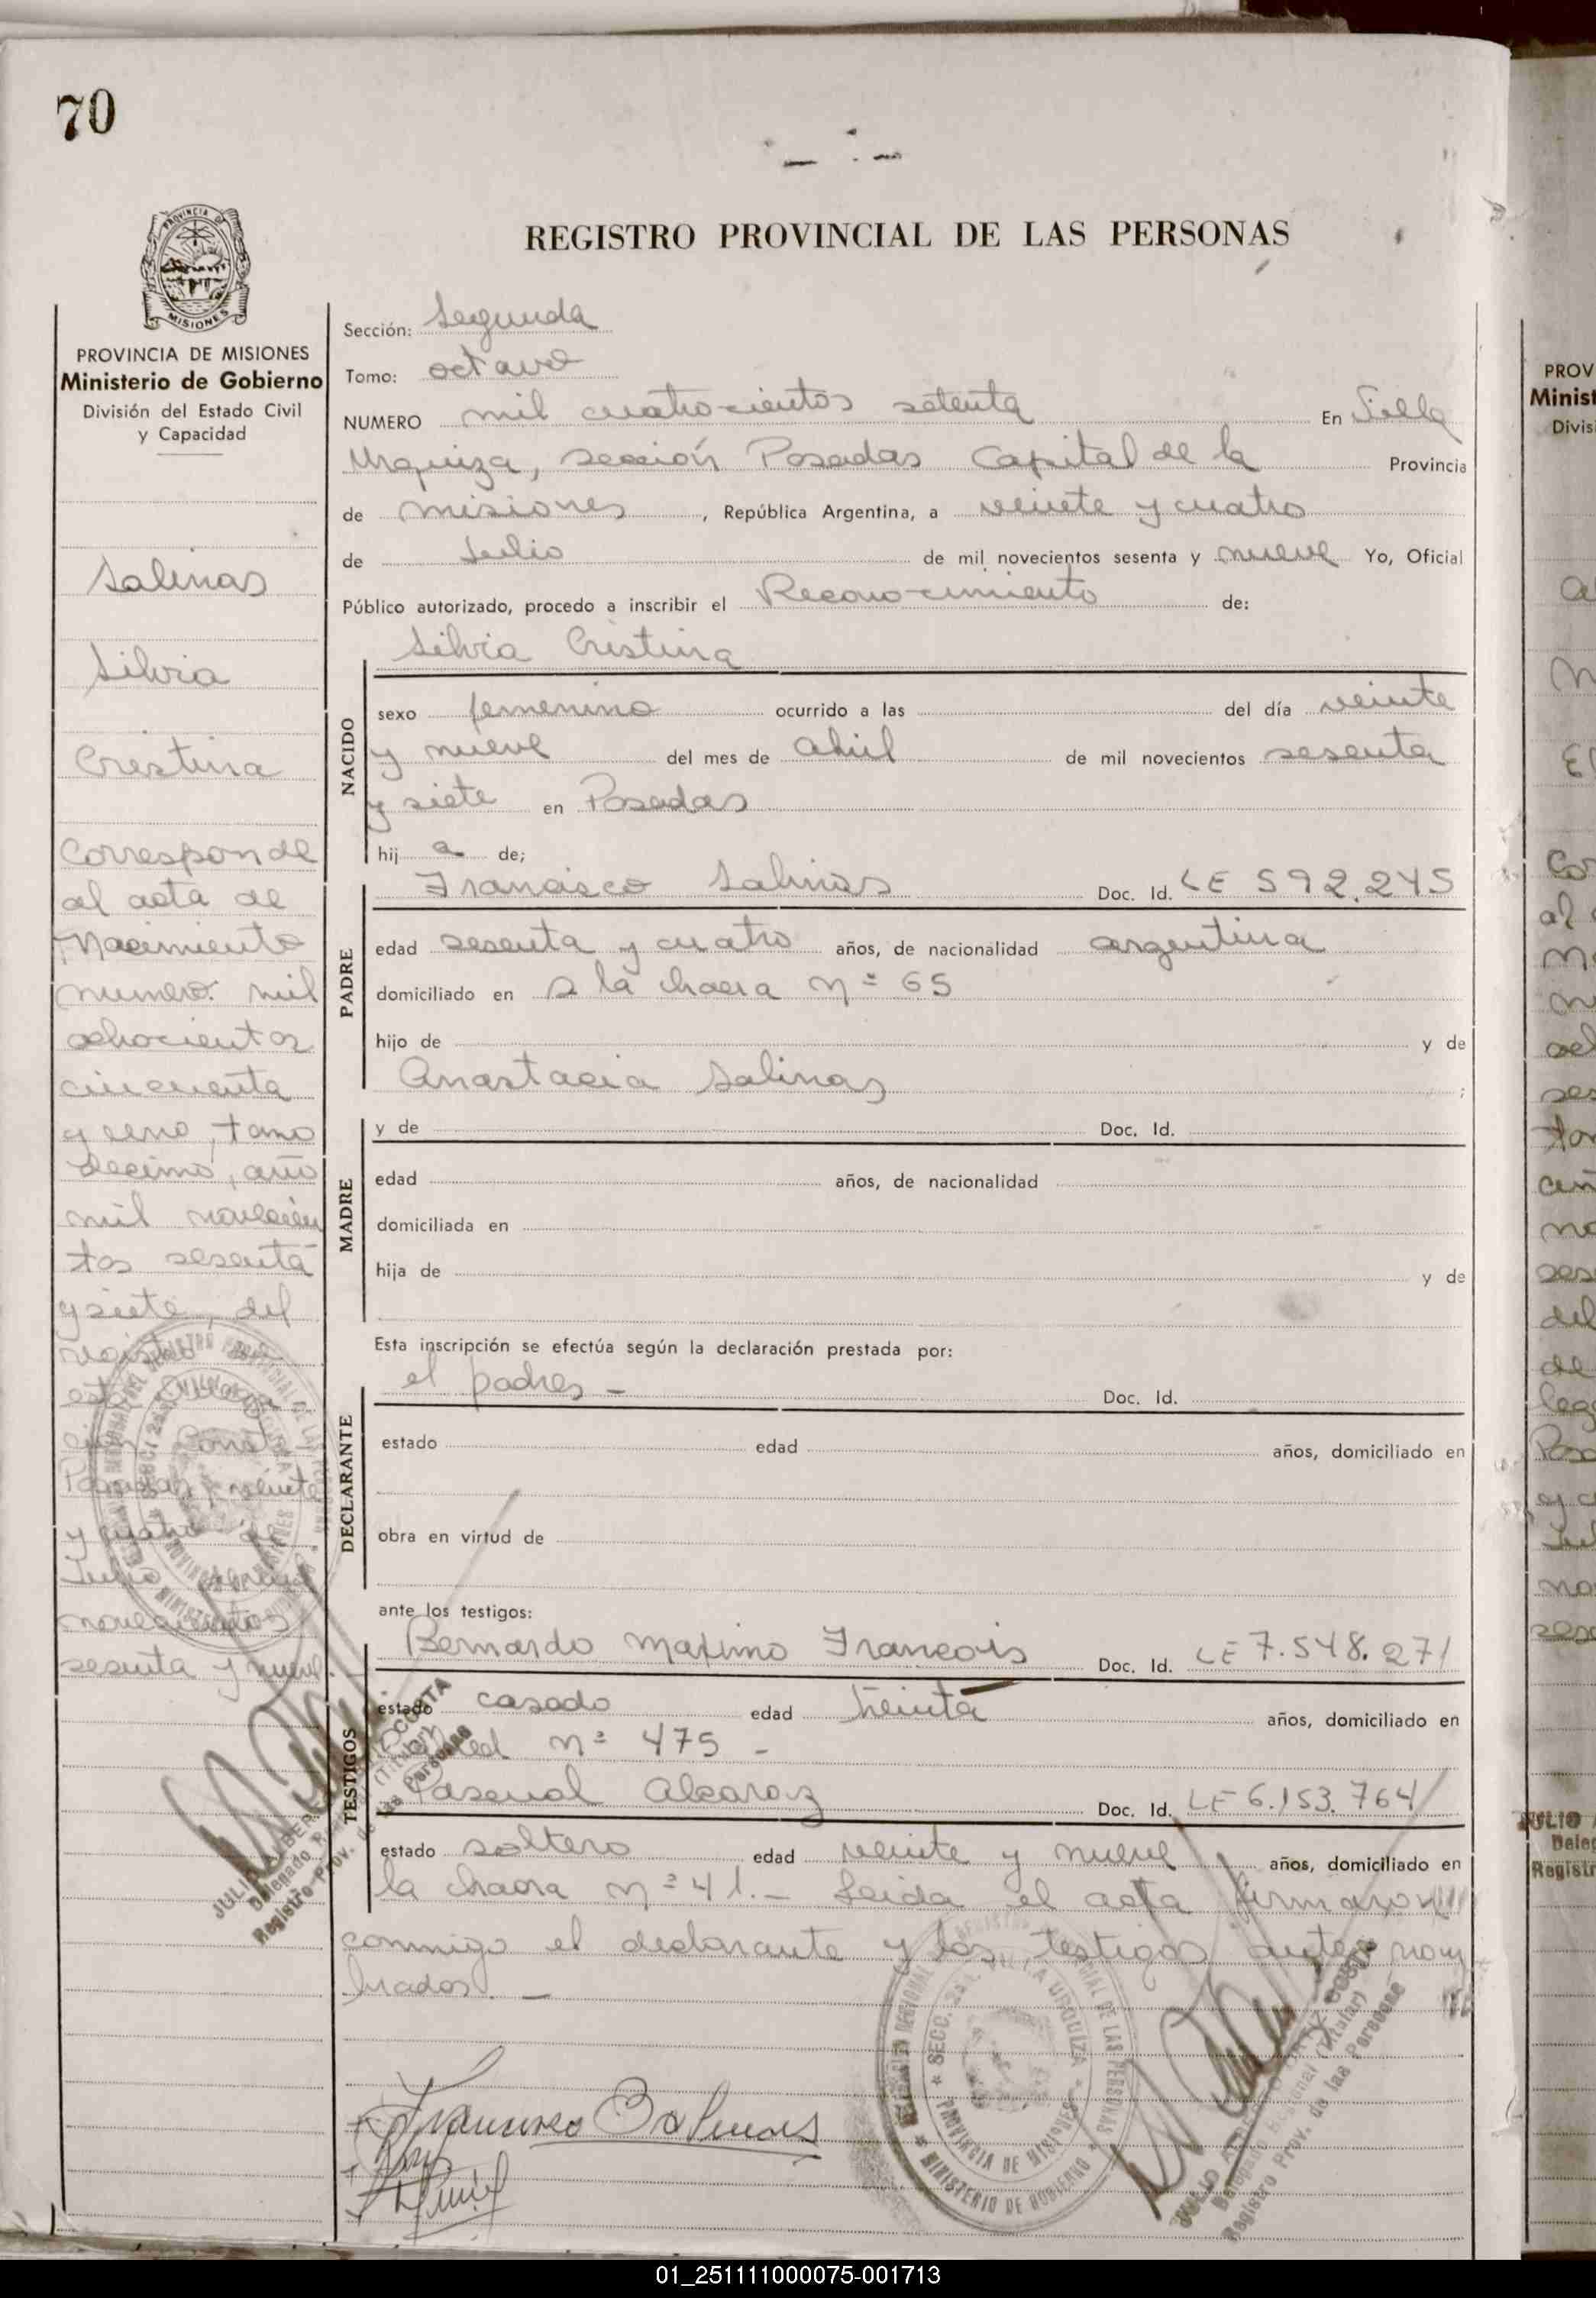 70
REGISTRO PROVINCIAL DE LAS PERSONAS
PROVINCIA DE
MISIONES
PROVINCIA DE MISIONES
Ministerio de Gobierno
División del Estado Civil
y Capacidad
Salinas
Silvia
Cristina
Corresponde
al acta de
Nacimiento
numero mil
ochocientos
cincuenta
y uno, tomo
decimo, año
mil novecien
tos sesenta
y siete, del
registro
Posadas, veinte
y cuatro de
Julio
novecientos
sesenta y nueve.
Sección: Segunda
Tomo: octavo
NUMERO mil cuatrocientos setenta En Villa
Urquiza, sección Posadas Capital de la Provincia
de misiones, República Argentina, a veinte y cuatro
de Julio de mil novecientos sesenta y nueve Yo, Oficial
Público autorizado, procedo a inscribir el Reconocimiento de:
Silvia Cristina
NACIDO
sexo femenino ocurrido a las del día veinte
y nueve del mes de abril de mil novecientos sesenta
y siete en Posadas
hij a de;
Francisco Salinas Doc. Id. LE 592.245
PADRE
edad sesenta y cuatro años, de nacionalidad argentina
domiciliado en la chacra nº 65
hijo de y de
Anastacia Salinas ;
MADRE
y de Doc. Id.
edad años, de nacionalidad
domiciliada en
hija de y de
Esta inscripción se efectúa según la declaración prestada por:
el padres - Doc. Id.
DECLARANTE
estado edad años, domiciliado en
obra en virtud de
ante los testigos:
Bernardo Maximo Francois Doc. Id. LE 7.548.271
TESTIGOS
estado casado edad treinta años, domiciliado en
nº 475 -
Pascual Alcaraz Doc. Id. LE 6.153.764
estado soltero edad veinte y nueve años, domiciliado en
la chacra nº 41.- Leida el acta firmaron
conmigo el declarante y los testigos ante nom
brados. -
Francisco Salinas
SECC. 2a. VILLA URQUIZA
PROVINCIA DE MISIONES
MINISTERIO DE GOBIERNO
Registro Prov. de las Personas
01_251111000075-001713